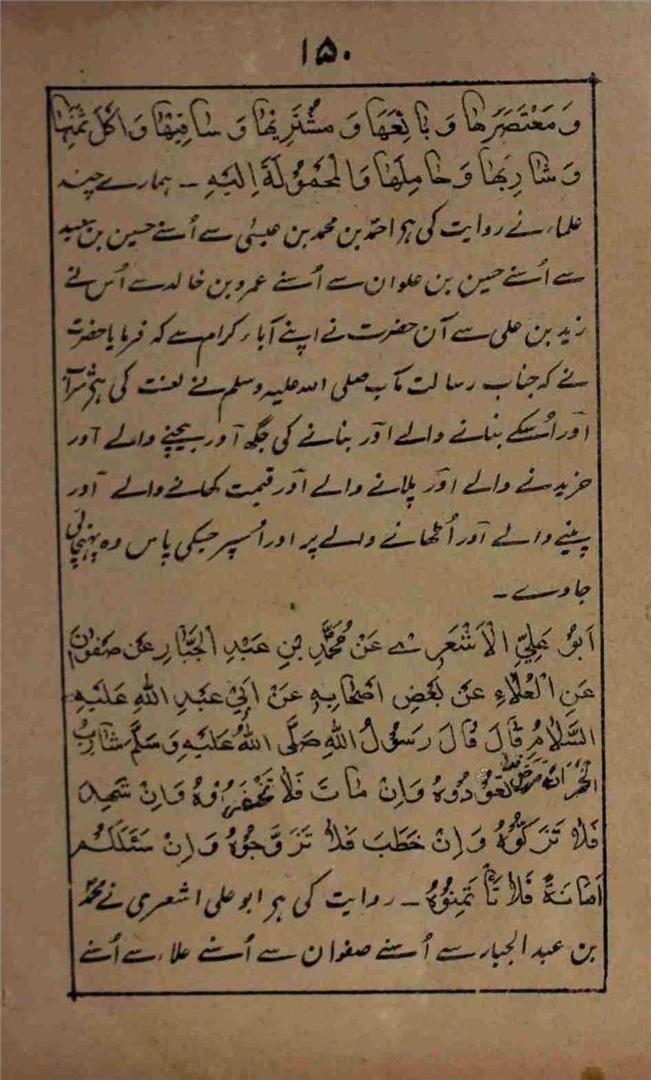 ۱۵۰
وَ مَعْتَصَرَهَا وَ بَائِعَهَا وَ مُشْتَرِيَهَا وَ سَاقِيَهَا وَ اٰكِلَ ثَمَنِهَا
وَ شَارِبَهَا وَ حَامِلَهَا وَ الْمَحْمُوْلَةَ اِلَيْهِ ۔ ہمارے چند
علماء نے روایت کی ہر احمد بن محمد بن عیسیٰ سے اُسنے حسین بن سعید
سے اُسنے حسین بن علوان سے اُسنے عمرو بن خالد سے اُس نے
زید بن علی سے آن حضرت نے اپنے آباء کرام سے کہ فرمایا حضرت
نے کہ جناب رسالت مآب صلی اللہ علیہ وسلم نے لعنت کی ہر شراب
اور اُسکے بنانے والے اور بنانے کی جگھ اور بیچنے والے اور
خریدنے والے اور پلانے والے اور قیمت کھانے والے اور
پینے والے اور اُٹھانے والے پر اور اُسپر جسکی پاس وہ پہنچائی
جاوے ۔
اَبُوْ عَلِيِّ الْاَشْعَرِيْ عَنْ مُحَمَّدِ بْنِ عَبْدِ الْجَبَّارِ عَنْ صَفْوَانَ
عَنِ الْعُلَاءِ عَنْ بَعْضِ اَصْحَابِهٖ عَنْ اَبِيْ عَبْدِ اللّٰهِ عَلَيْهِ
السَّلَامُ قَالَ قَالَ رَسُوْلُ اللّٰهِ صَلَّى اللّٰهُ عَلَيْهِ وَسَلَّمَ شَارِبُ
الْخَمْرِ اِنْ مَرِضَ فَلَا تَعُوْدُوْهُ وَ اِنْ مَاتَ فَلَا تَحْضُرُوْهُ وَ اِنْ شَهِدَ
فَلَا تُزَكُّوْهُ وَ اِنْ خَطَبَ فَلَا تُزَوِّجُوْهُ وَ اِنْ سَئَلَكُمْ
اَمَانَةً فَلَا تَأْتَمِنُوْهُ ۔ روایت کی ہر ابو علی اشعری نے محمد
بن عبد الجبار سے اُسنے صفوان سے اُسنے علاء سے اُسنے